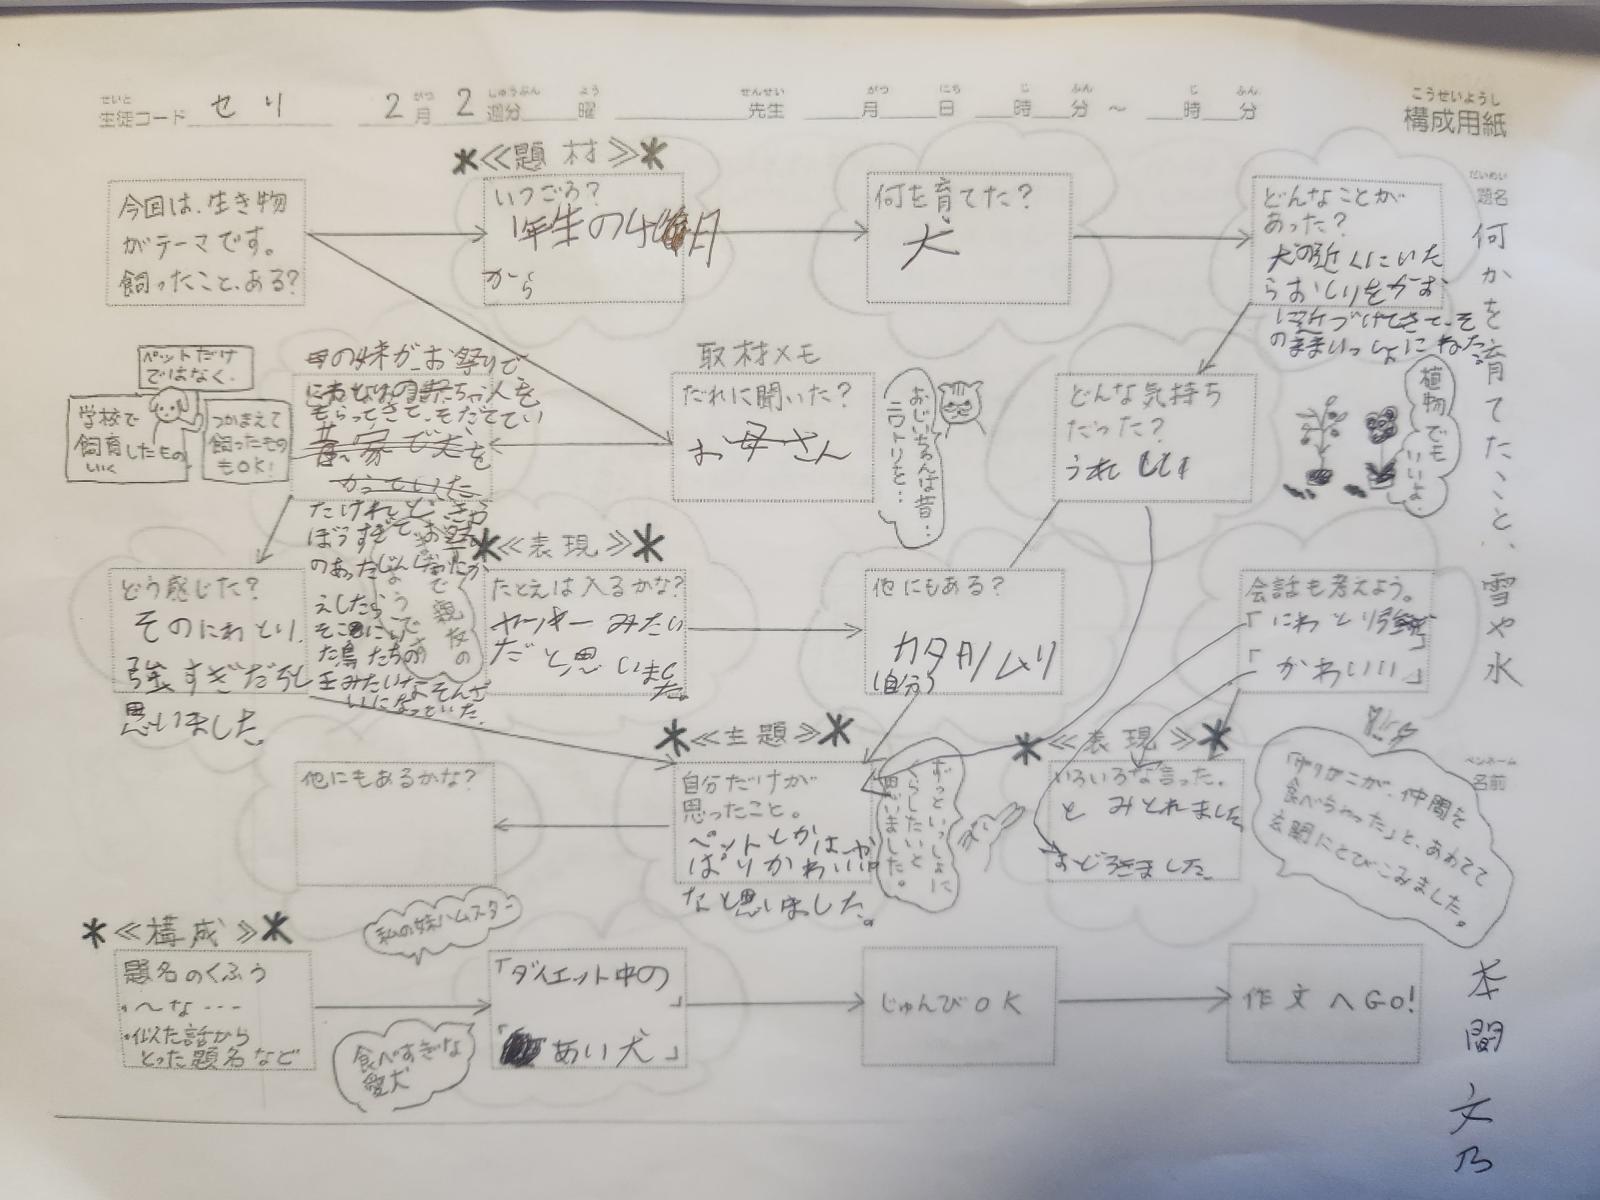 せいと
生徒コード セリ 2月 2週分 曜 先生 月 日 時 分 ～ 時 分
こうせいようし
構成用紙
だいめい
題名
何かを育てたこと、雪や水
ペンネーム
名前
本間文乃
今回は、生き物
がテーマです。
飼ったこと、ある?
≪題材≫
いつごろ?
1年生の4月
から
何を育てた?
犬
どんなことが
あった?
犬の近くにいた
らおしりをかお
に近づけてきて、そ
のままいっしょにねた。
ペットだけ
ではなく、
学校で
飼育したもの
いく
つかまえて
飼ったもの
もOK!
母の妹が、お祭りで
にわとりの赤ちゃん を
もらってきて、そだててい
昔、家で犬を
かっていた
たけれど、きょう
ぼうすぎて、お祭り
のあったじんじゃにか
えしたら
そこにい
た鳥たちの
王みたいなそんざ
いになっていた。
取材メモ
だれに聞いた?
お母さん
おじいちゃんは昔‥
ニワトリを‥
どんな気持ち
だった?
うれしい
植物でも
いいよ。
どう感じた?
そのにわとり、
強すぎだろと
思いました。
≪表現≫
たとえは入るかな?
ヤンキーみたい
だと思いました。
他にもある?
カタツムリ
(自分)
会話も考えよう。
「にわとり強
「かわいい」
≪主題≫
自分だけが
思ったこと。
ペットとかはやっ
ぱりかわいい
なと思いました。
ずっといっしょに
くらしたいと
思いました。
≪表現≫
いろいろな言った。
と みとれました
おどろきました。
「ザリガニが、仲間を
食べちゃった」と、あわてて
玄関にとびこみました。
他にもあるかな?
私の妹ハムスター
≪構成≫
題名のくふう
・～な・・・
・似た話から
とった題名など
食べすぎな
愛犬
「ダイエット中の
」
「 あい犬」
じゅんびOK
作文へGo!